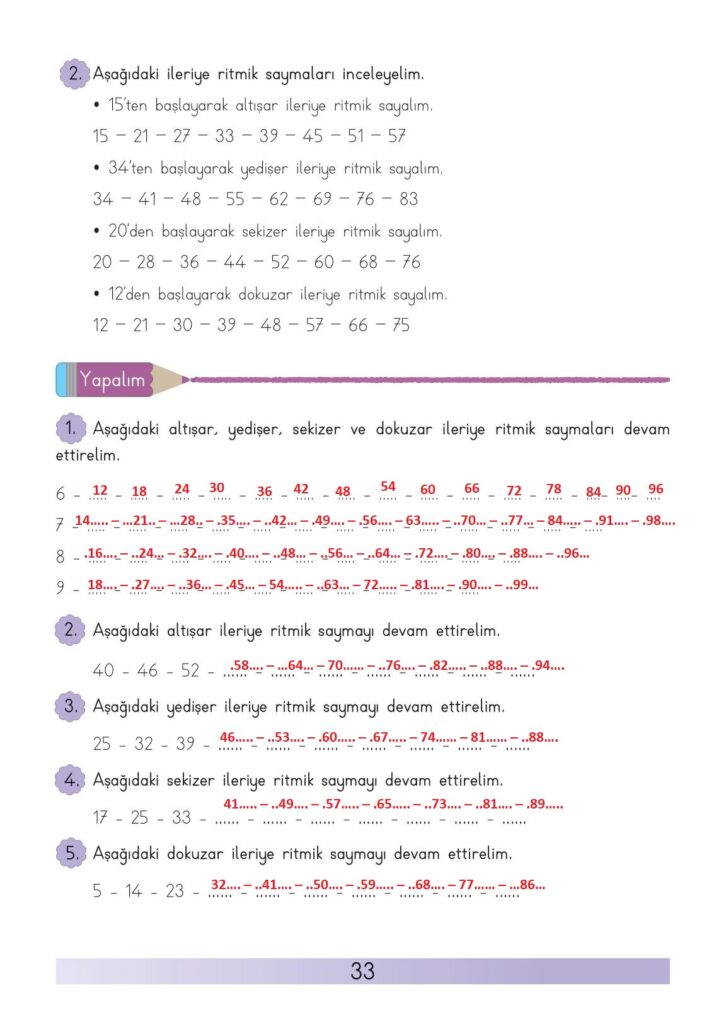 2. Aşağıdaki ileriye ritmik saymaları inceleyelim.
• 15'ten başlayarak altışar ileriye ritmik sayalım.
15 – 21 – 27 – 33 – 39 – 45 – 51 – 57
• 34'ten başlayarak yedişer ileriye ritmik sayalım.
34 – 41 – 48 – 55 – 62 – 69 – 76 – 83
• 20'den başlayarak sekizer ileriye ritmik sayalım.
20 – 28 – 36 – 44 – 52 – 60 – 68 – 76
• 12'den başlayarak dokuzar ileriye ritmik sayalım.
12 – 21 – 30 – 39 – 48 – 57 – 66 – 75
Yapalım
1. Aşağıdaki altışar, yedişer, sekizer ve dokuzar ileriye ritmik saymaları devam
ettirelim.
6 – 12 – 18 – 24 – 30 – 36 – 42 – 48 – 54 – 60 – 66 – 72 – 78 – 84 – 90 – 96
7 – 14..... – ...21.. – ...28.. – .35.... – ..42... – .49.... – .56.... – 63..... – ..70... – ..77... – 84..... – .91.... – .98....
8 – .16.... – ..24... – .32.... – .40.... – ..48... – ..56... – ..64... – .72.... – .80.... – .88.... – ..96...
9 – 18.... – .27.... – ..36... – .45... – 54..... – ..63... – 72..... – .81.... – .90.... – ..99...
2. Aşağıdaki altışar ileriye ritmik saymayı devam ettirelim.
40 – 46 – 52 – .58.... – ...64... – 70...... – ..76.... – .82..... – ..88.... – .94....
3. Aşağıdaki yedişer ileriye ritmik saymayı devam ettirelim.
25 – 32 – 39 – 46..... – ..53.... – .60..... – .67..... – 74...... – 81...... – ..88....
4. Aşağıdaki sekizer ileriye ritmik saymayı devam ettirelim.
41..... – ..49.... – .57..... – .65..... – ..73.... – ..81.... – .89.....
17 – 25 – 33 – ...... – ...... – ...... – ...... – ...... – ...... – ......
5. Aşağıdaki dokuzar ileriye ritmik saymayı devam ettirelim.
5 – 14 – 23 – 32.... – ..41.... – ..50.... – .59..... – ..68.... – 77...... – ...86...
33